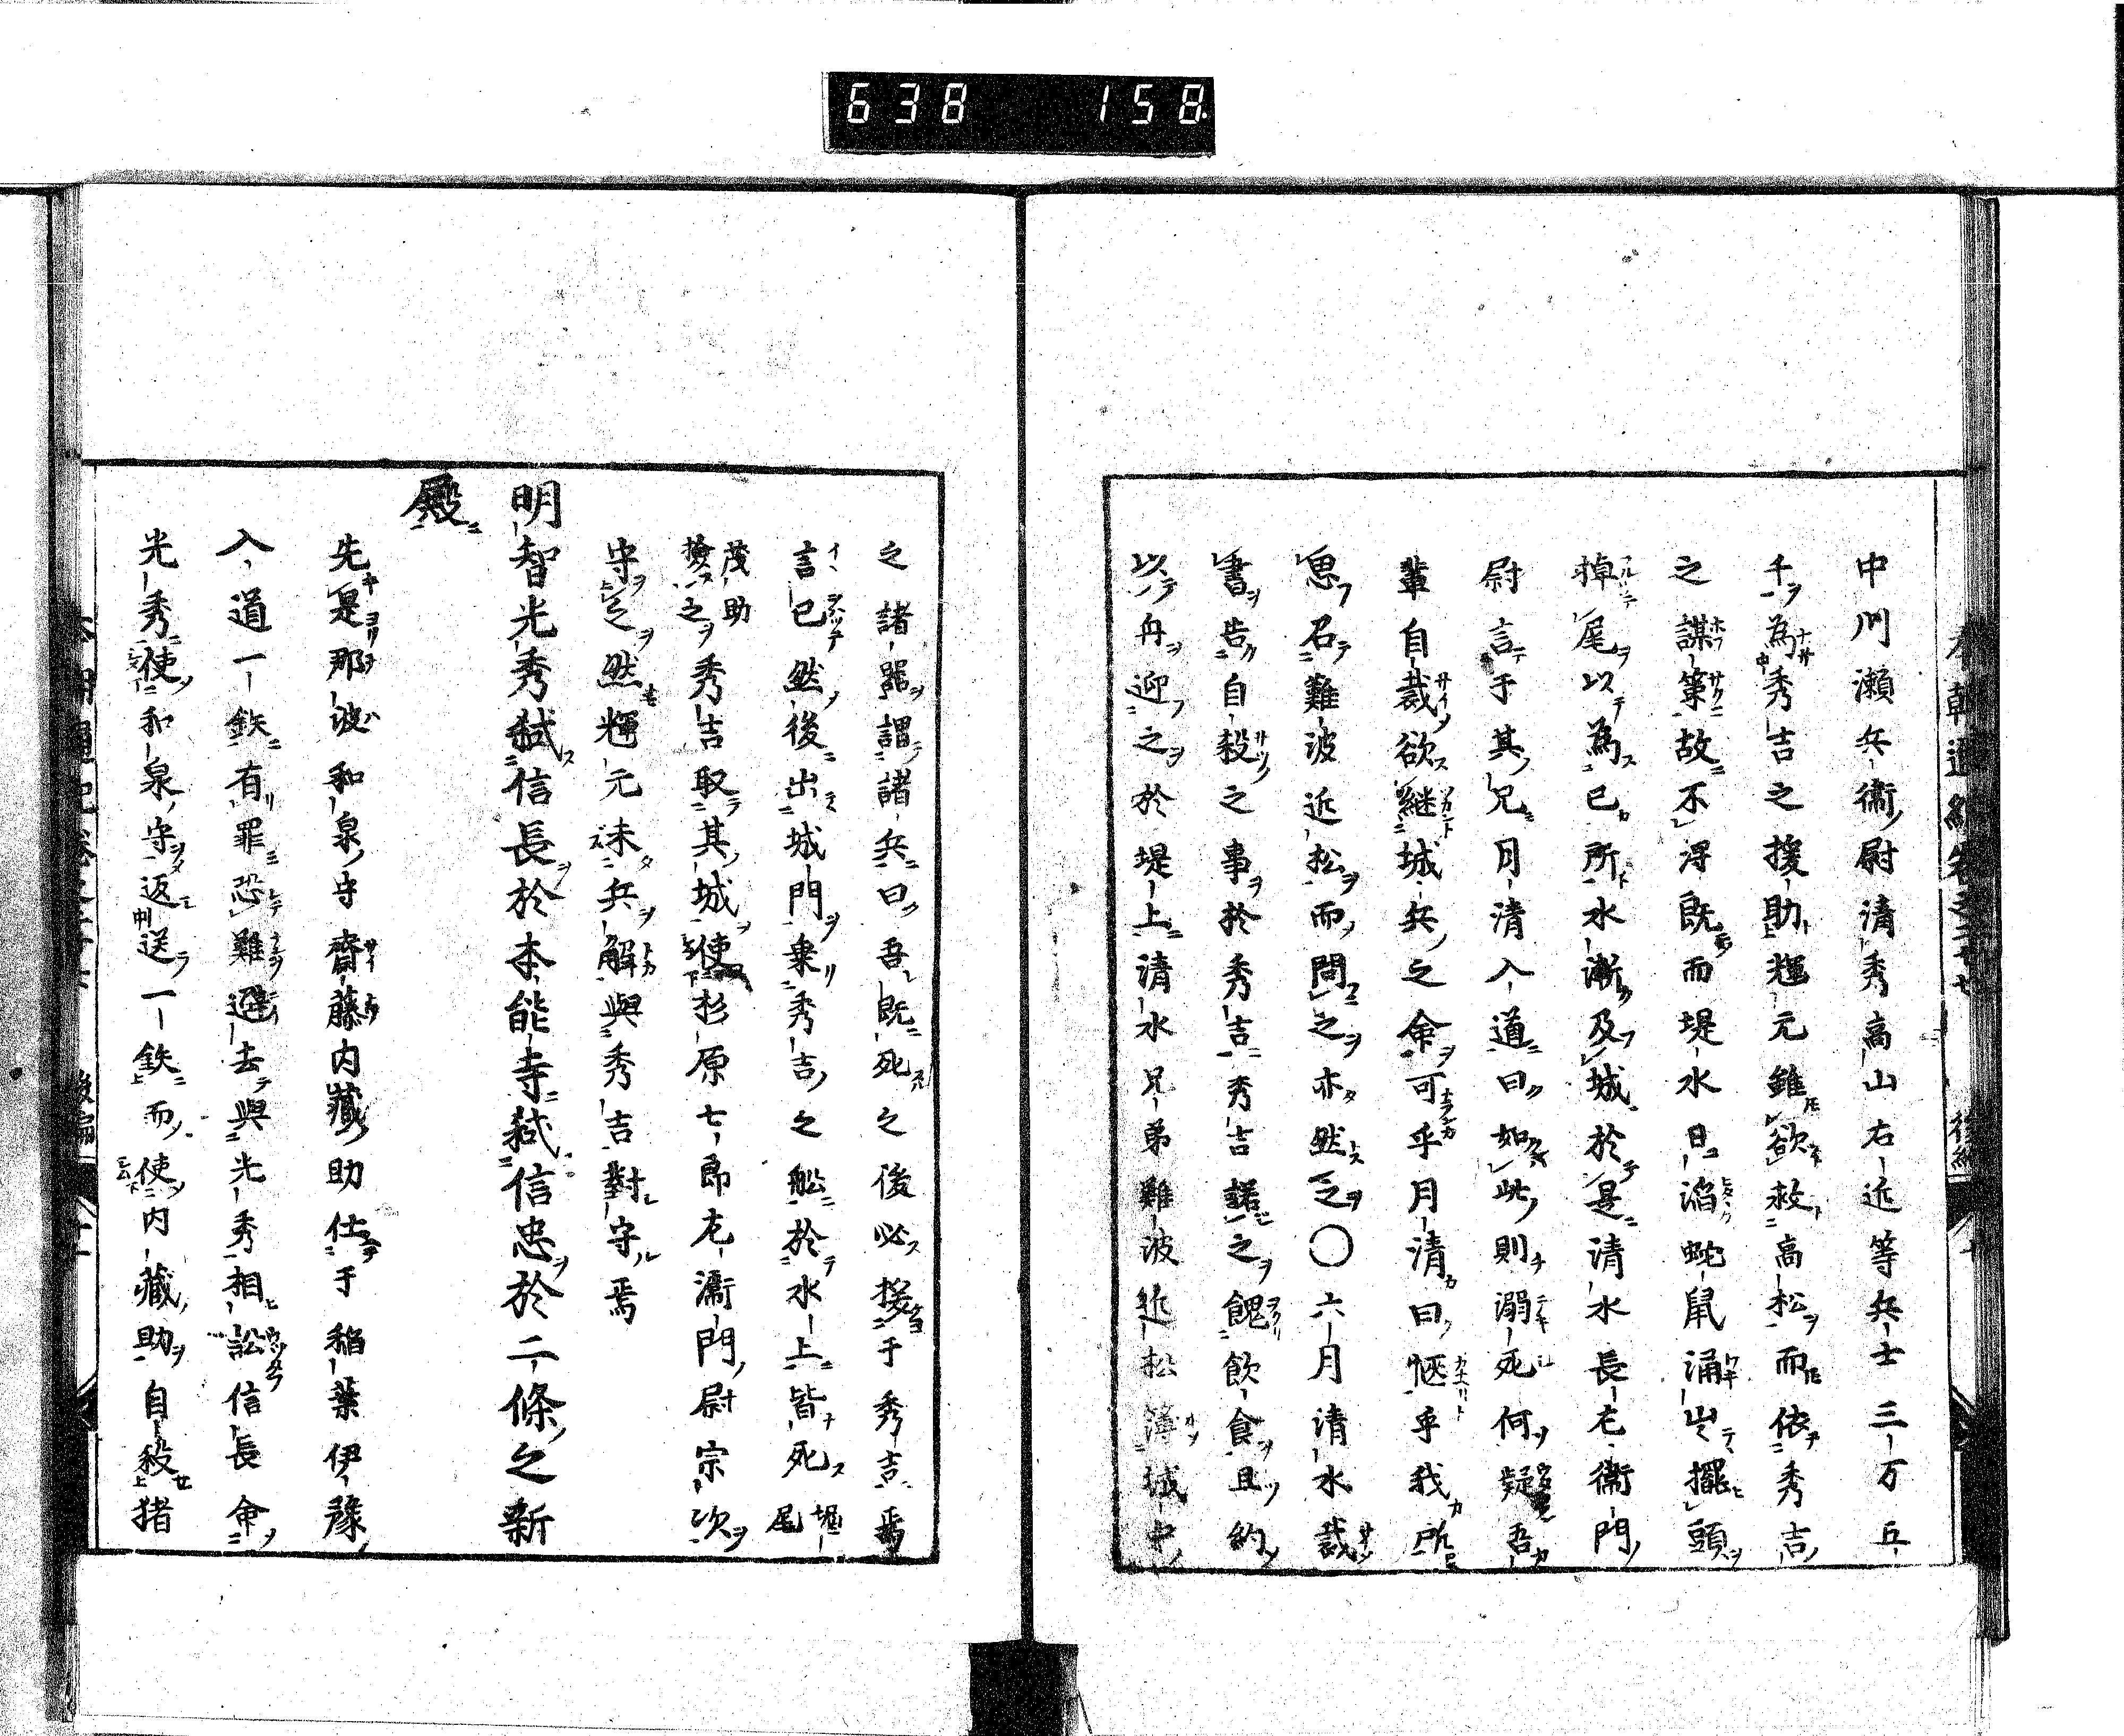 638 158
中川瀬兵衞尉清秀高山右近等兵士三万五
千為秀吉之援助輝元雖欲救高松而依秀吉
之謀策故不得既而堤水日滔蛇鼠涌出擺頭
掉尾以為已所水漸及城於是清水長左衞門
尉言于其兄月清入道曰如此則溺死何疑吾
輩自裁欲継城兵之命可乎月清曰愜乎我所
思召難波近松而問之亦然之〇六月清水裁
書告自殺之事於秀吉秀吉諾之餽飲食且約
以舟迎之於堤上清水兄弟難波近松簿城中
之諸器謂諸兵曰吾既死之後必授于秀吉焉
言已然後出城門乗秀吉之舩於水上皆死堀尾
茂助檢之秀吉取其城使杉原七郎左衞門尉宗次
守之然輝元未兵解與秀吉對守焉
明智光秀弑信長於本能寺弑信忠於二條之新
殿
先是那波和泉守齋藤内藏助仕于稲葉伊豫
入道一鉄有罪恐難遁去與光秀相訟信長命
光秀使和泉守返送一鉄而使内藏助自殺猪